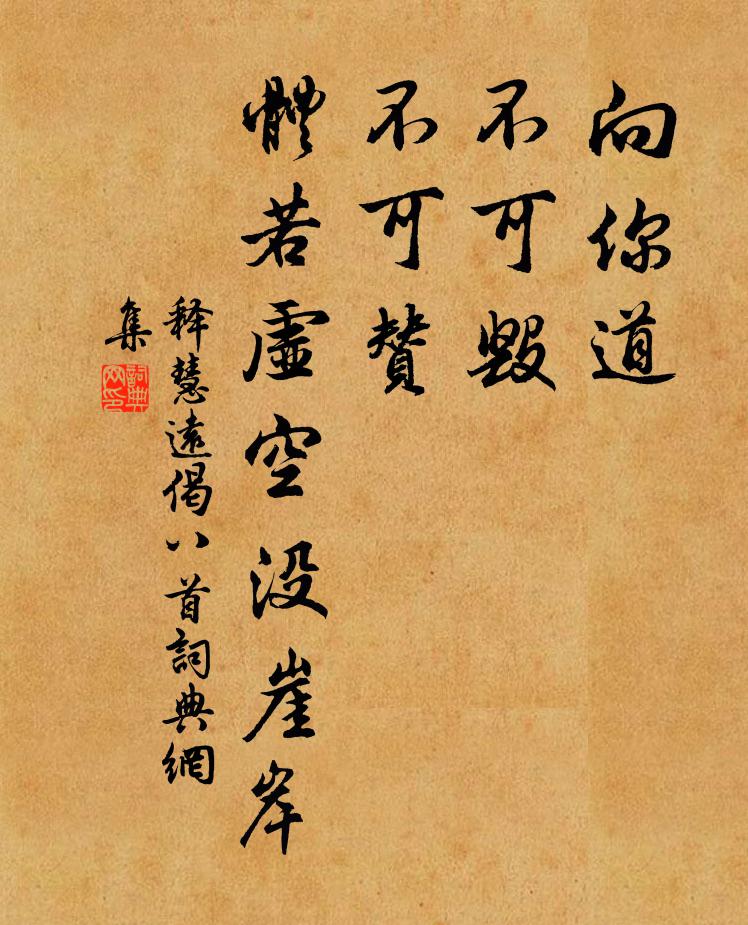 向你道
不可毀
不可贊
體若虛空没崖岸
释慧遠偈八首詞典網
集
詞典
网印